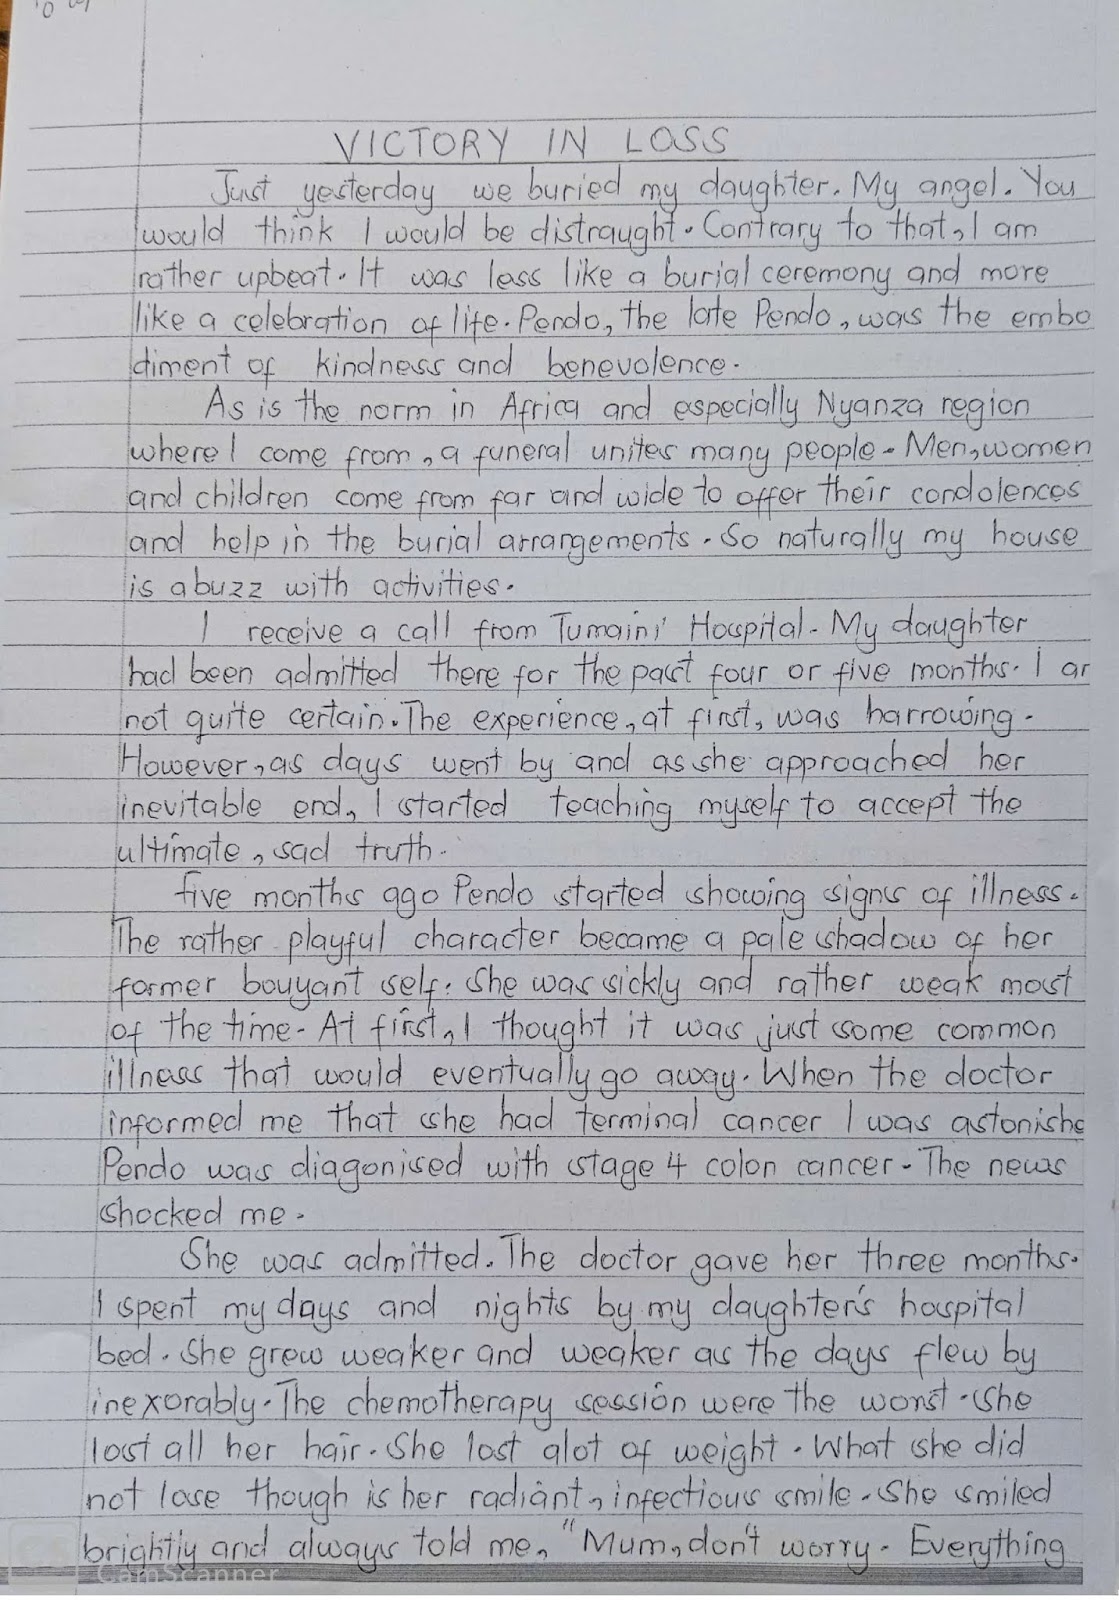 VICTORY IN LOSS
Just yesterday we buried my daughter. My angel. You
would think I would be distraught. Contrary to that, I am
rather upbeat. It was less like a burial ceremony and more
like a celebration of life. Pendo, the late Pendo, was the embo
diment of kindness and benevolence.
As is the norm in Africa and especially Nyanza region
where I come from, a funeral unites many people. Men, women
and children come from far and wide to offer their condolences
and help in the burial arrangements. So naturally my house
is abuzz with activities.
I receive a call from Tumaini Hospital. My daughter
had been admitted there for the past four or five months. I
not quite certain. The experience, at first, was harrowing.
However, as days went by and as she approached her
inevitable end, I started teaching myself to accept the
ultimate, sad truth.
Five months ago Pendo started showing signs of illness.
The rather playful character became a pale shadow of her
former bouyant self. She was sickly and rather weak most
of the time. At first, I thought it was just some common
illness that would eventually go away. When the doctor
informed me that she had terminal cancer I was astonishe
Pendo was diagonised with stage 4 colon cancer. The news
shocked me.
She was admitted. The doctor gave her three months.
I spent my days and nights by my daughter's hospital
bed. She grew weaker and weaker as the days flew by
inexorably. The chemotherapy session were the worst. She
lost all her hair. She lost alot of weight. What she did
not lose though is her radiant, infectious smile. She smiled
brightly and always told me, "Mum, don't worry. Everything
CS CamScanner